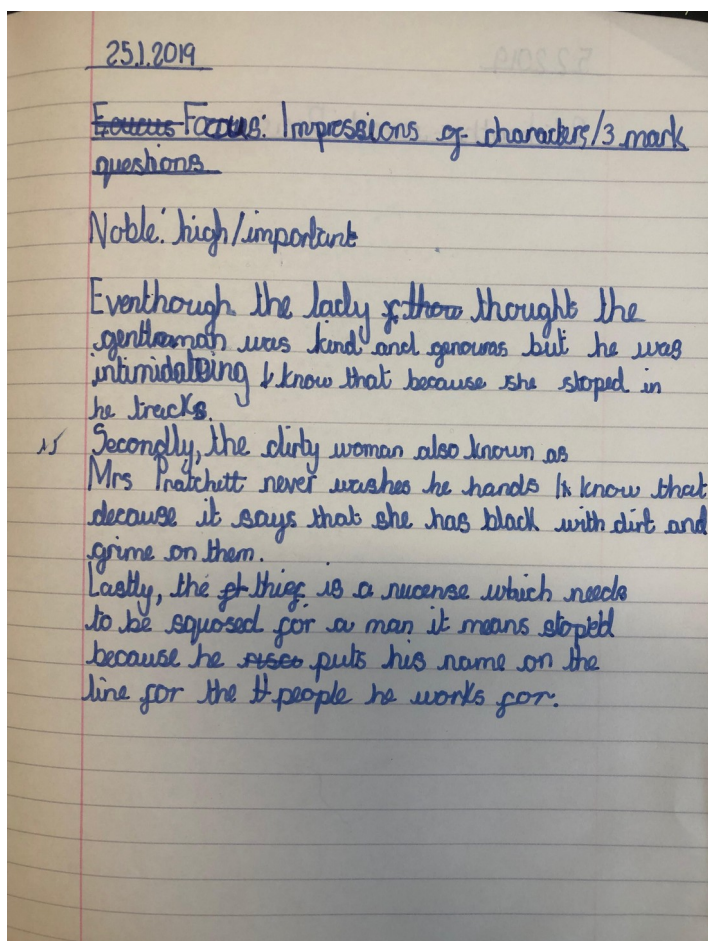 25.1.2019
Foucus Foccus: Impressions of characters/3 mark
questions
Noble: high/important
Eventhough the lady thought the
gentleman was kind and genouras but he was
intimidateing I know that because she stoped in
he tracks.
Secondly, the dirty woman also known as
Mrs Pratchett never washes he hands I know that
decause it says that she has black with dirt and
grime on them.
Lastly, the thief is a nucense which needs
to be squosed for a man it means stoped
because he puts his name on the
line for the people he works for.